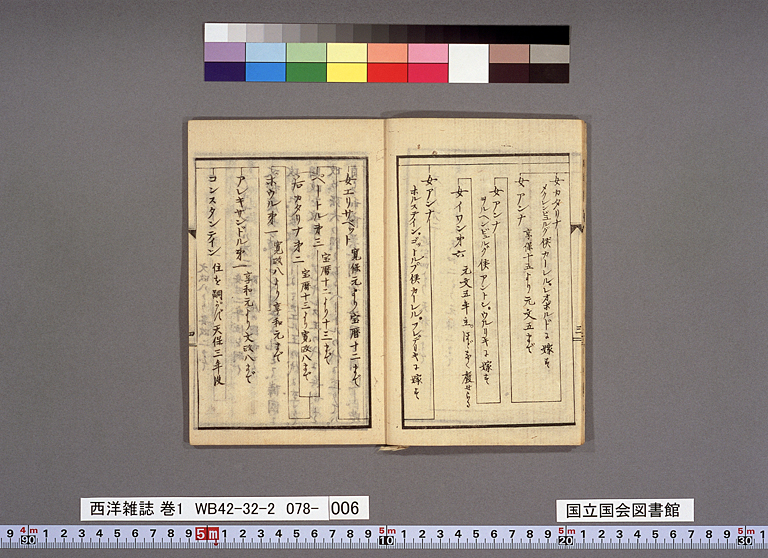 女カタリナ
メクレンビュルク侯カーレル・レオポルドニ嫁ス
女アンナ
享保十五より元文五まで
女アンナ
ブルンスウ侯アントン・ウルリキニ嫁ス
女イワン第六
元文五年立
女アンナ
ホルステイン・ゴットルプ侯カーレル・フレデリキニ嫁ス
女エリサベット
寛保元より宝暦十二まで
ペートル第三
宝暦十二より十三まで
后カタリナ第二
宝暦十三より寛政八まで
ポウル第一
寛政八より享和元まで
アレキサンドル第一
享和元より文政八まで
コンスタンテイン
位を嗣がず天保三年没
三
四
西洋雑誌 巻1 WB42-32-2 078- 006
国立国会図書館